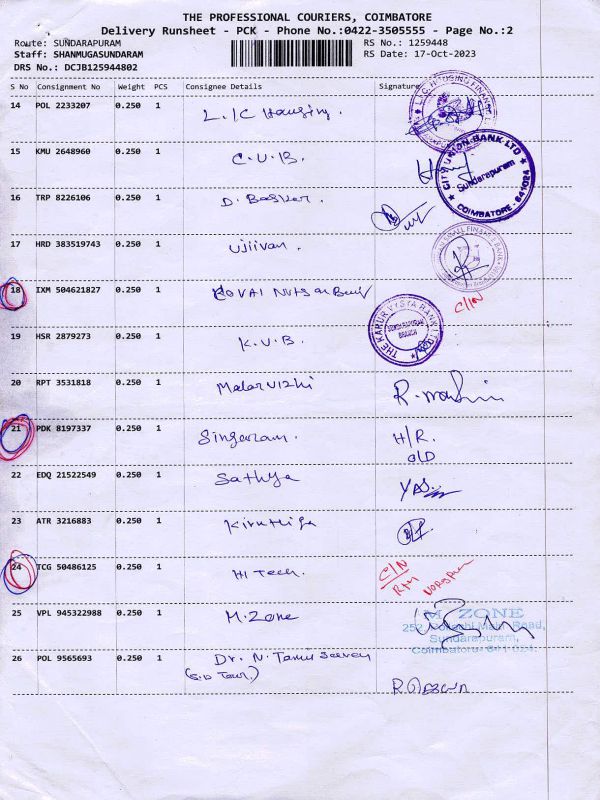 THE PROFESSIONAL COURIERS, COIMBATORE
Delivery Runsheet - PCK - Phone No.:0422-3505555 - Page No.:2
Route: SUNDARAPURAM RS No.: 1259448
Staff: SHANMUGASUNDARAM RS Date: 17-Oct-2023
DRS No.: DCJB125944802
S No Consignment No Weight PCS Consignee Details Signature
14 POL 2233207 0.250 1 L.I.C Housing.
15 KMU 2648960 0.250 1 C.U.B.
CITY UNION BANK LTD
Sundarapuram
COIMBATORE - 641024
16 TRP 8226106 0.250 1 D. Basker.
17 HRD 383519743 0.250 1 Ujiivan.
18 IXM 504621827 0.250 1 KOVAI C/N
19 HSR 2879273 0.250 1 K.V.B.
THE KARUR VYSYA BANK LTD
SUNDARAPURAM
BRANCH
20 RPT 3531818 0.250 1 Malarvizhi
21 PDK 8197337 0.250 1 Singaram. H/R.
OLD
22 EDQ 21522549 0.250 1 Sathya
23 ATR 3216883 0.250 1 Kiruthiga
24 TCG 50486125 0.250 1 Hi Tech. C/N
25 VPL 945322988 0.250 1 M. Zone
M. ZONE
252, Main Road,
Sundarapuram,
Coimbatore - 641 024.
26 POL 9565693 0.250 1 Dr. N. Tamil